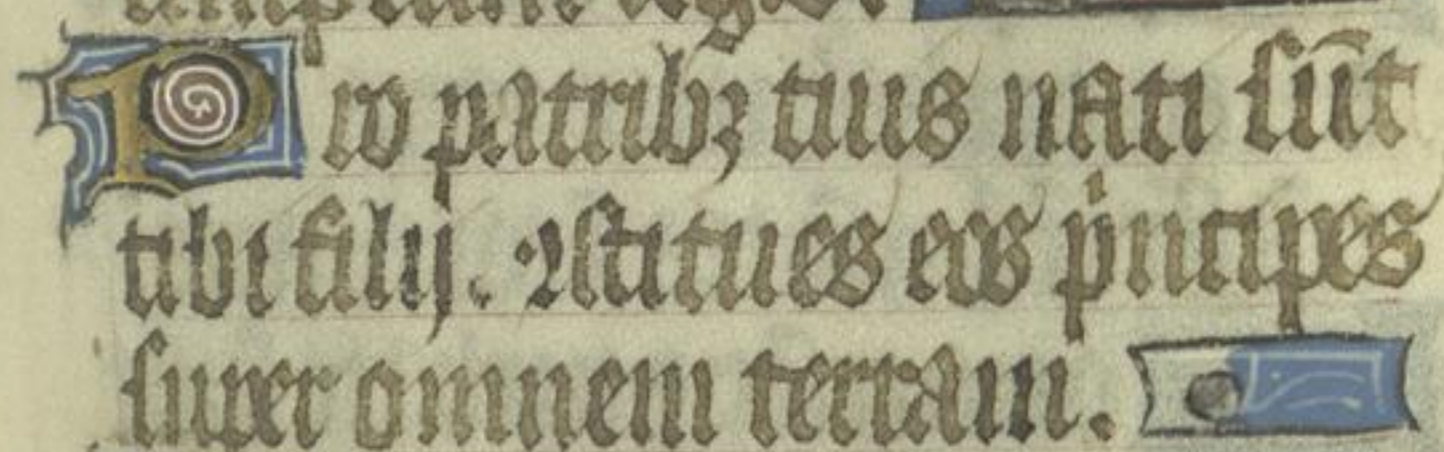 Pro patribꝫ tuis nati sūt
tibi filij. ꝯstitues eos pͥncipes
super omnem terram.